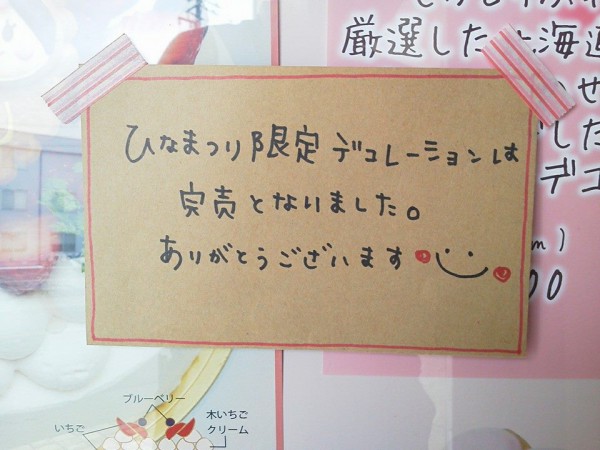 厳選した北海道
ひなまつり限定デコレーションは
完売となりました。
ありがとうございます
せ
した
デコ
m)
00
ブルーベリー
いちご
木いちご
クリーム